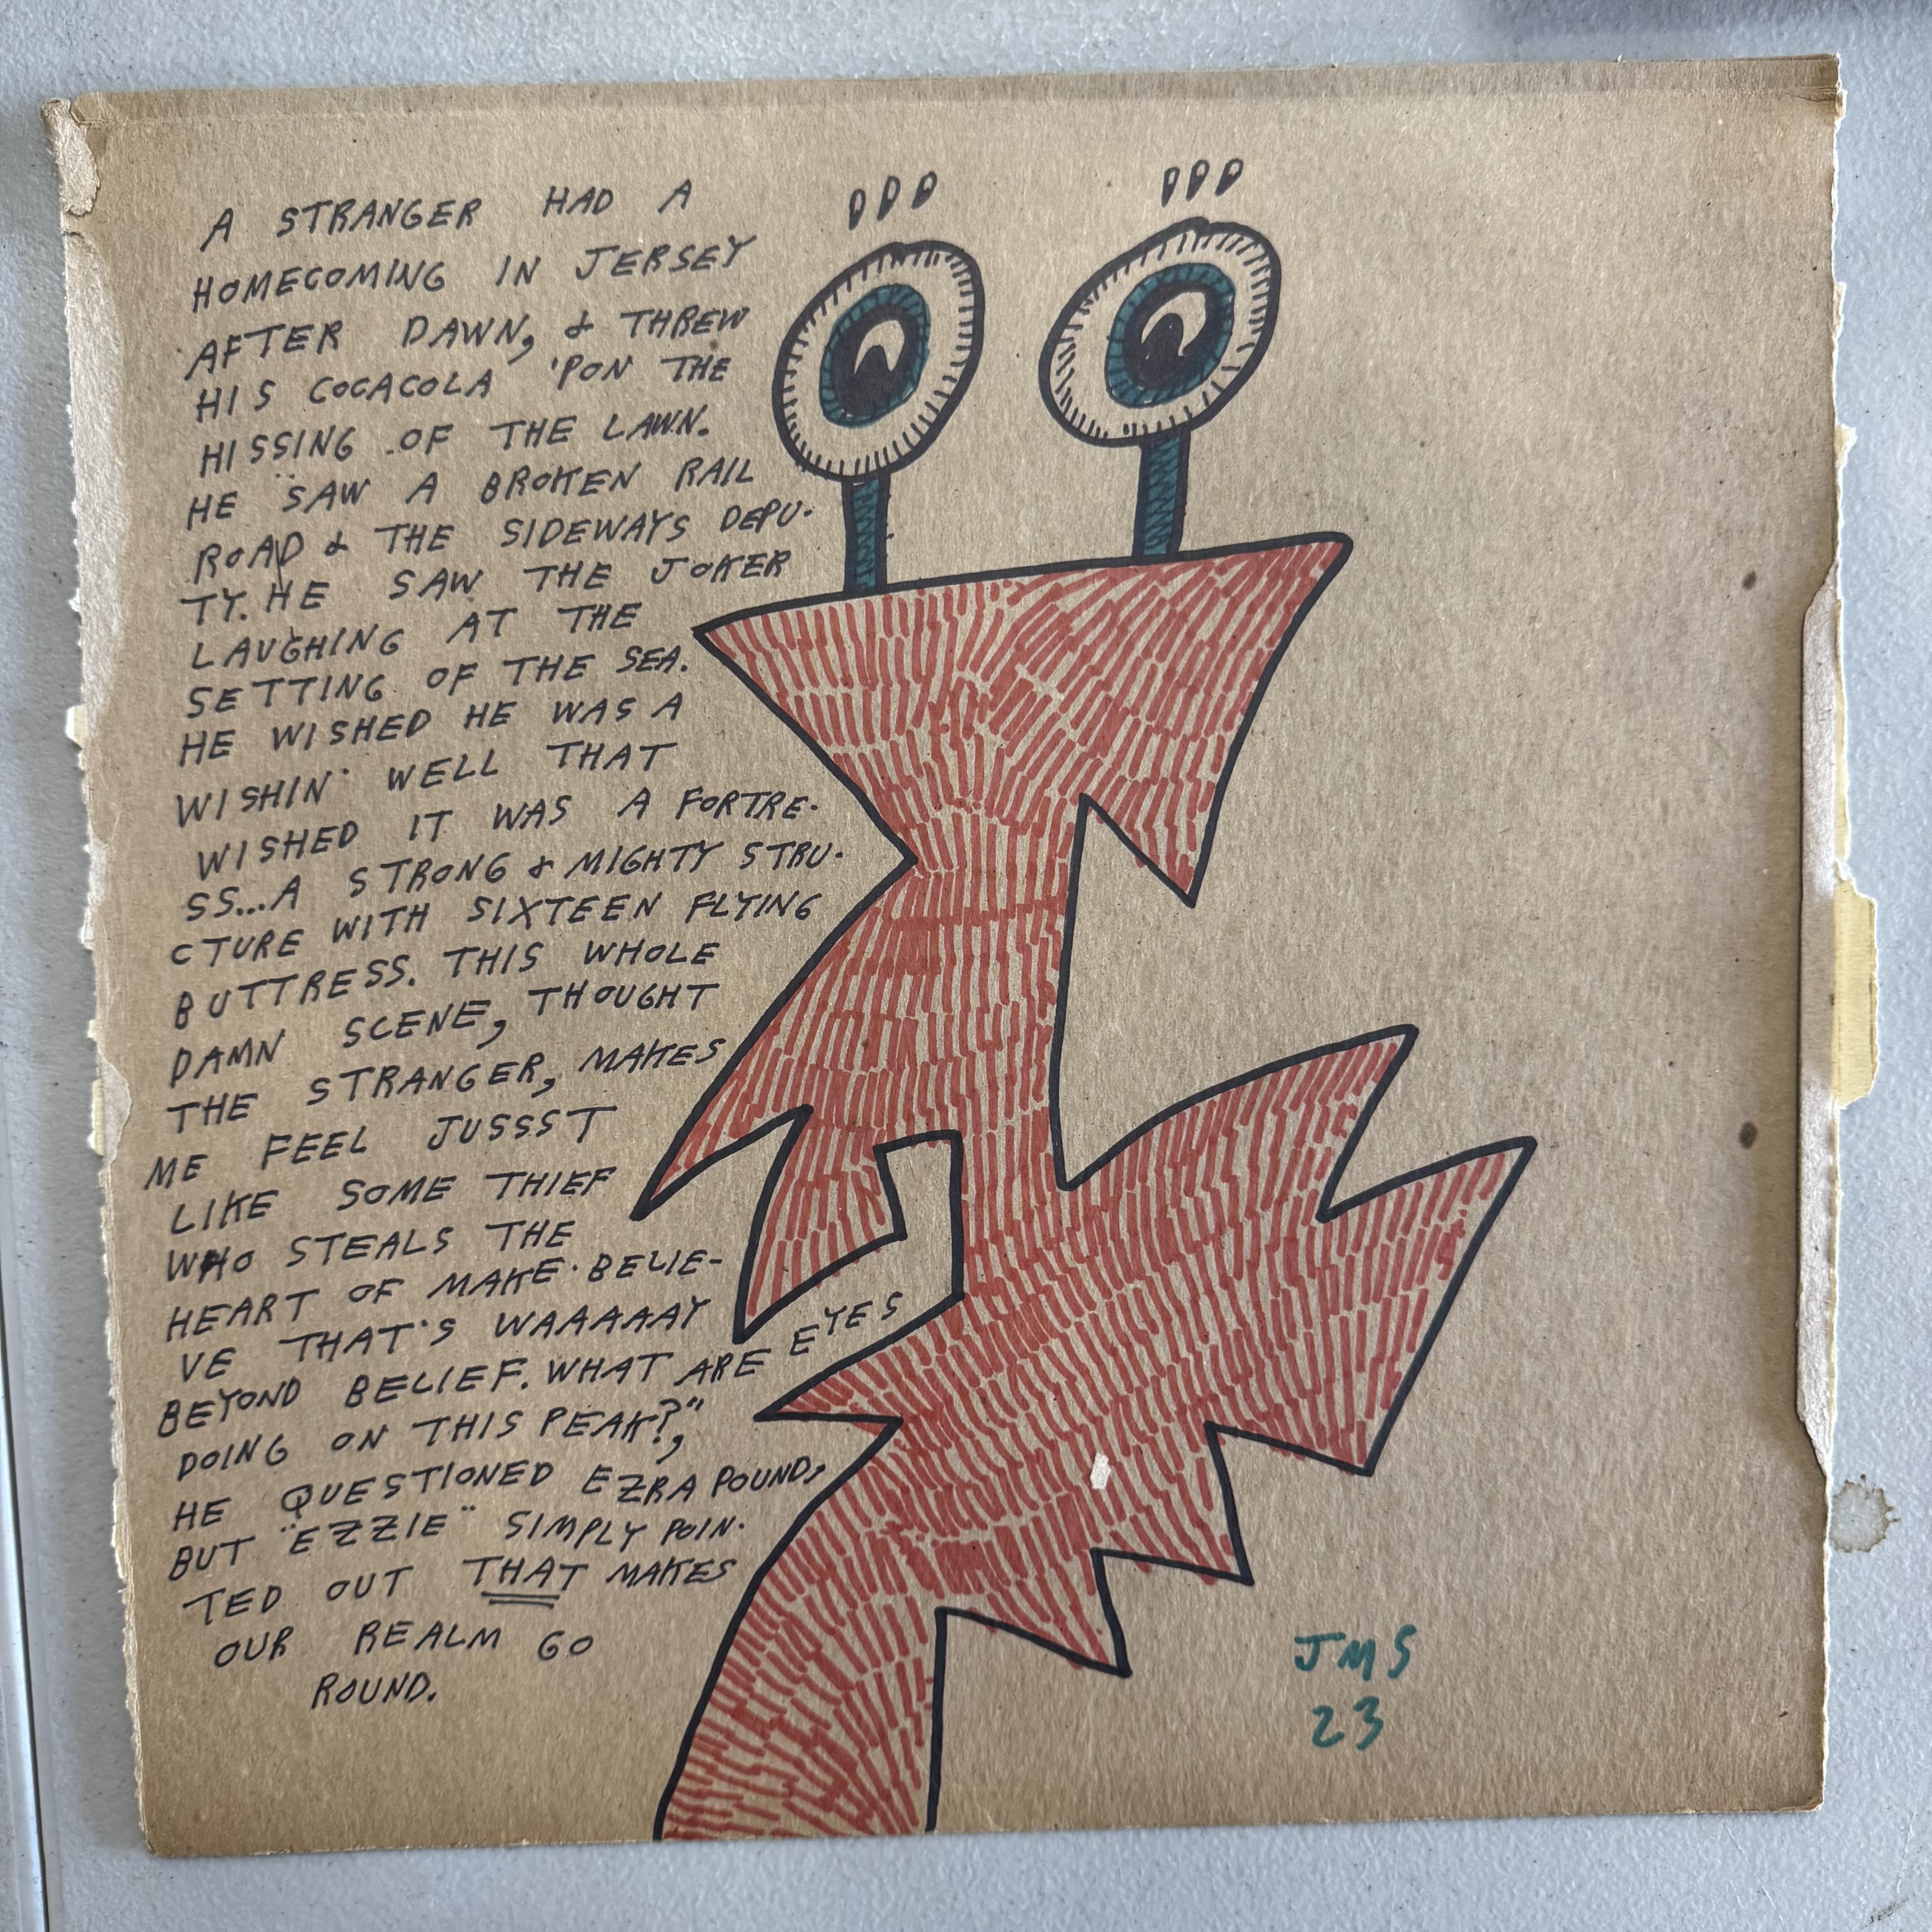 A STRANGER HAD A
HOMECOMING IN JERSEY
AFTER DAWN, & THREW
HIS COCACOLA 'PON THE
HISSING OF THE LAWN.
HE SAW A BROKEN RAIL
ROAD & THE SIDEWAYS DEPU-
TY. HE SAW THE JOKER
LAUGHING AT THE
SETTING OF THE SEA.
HE WISHED HE WAS A
WISHIN' WELL THAT
WISHED IT WAS A FORTRE-
SS...A STRONG & MIGHTY STRU-
CTURE WITH SIXTEEN FLYING
BUTTRESS. THIS WHOLE
DAMN SCENE, THOUGHT
THE STRANGER, MAKES
ME FEEL JUSSST
LIKE SOME THIEF
WHO STEALS THE
HEART OF MAKE-BELIE-
VE THAT'S WAAAAAY
BEYOND BELIEF. WHAT ARE EYES
DOING ON THIS PEAK?,"
HE QUESTIONED EZRA POUND,
BUT "EZZIE" SIMPLY POIN-
TED OUT THAT MAKES
OUR REALM GO
ROUND.
JMS
23